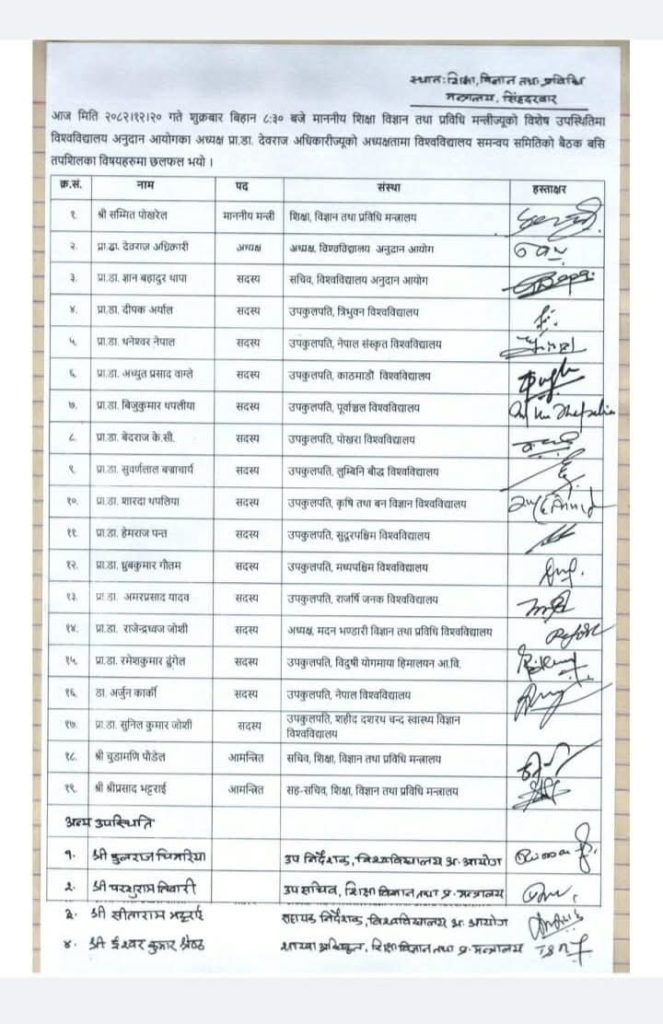 स्थानः शिक्षा, विज्ञान तथा प्रविधि
मन्त्रालय, सिंहदरबार
आज मिति २०८२।१२।२० गते शुक्रबार बिहान ८:३० बजे माननीय शिक्षा विज्ञान तथा प्रविधि मन्त्रीज्यूको विशेष उपस्थितिमा
विश्वविद्यालय अनुदान आयोगका अध्यक्ष प्रा.डा. देवराज अधिकारीज्यूको अध्यक्षतामा विश्वविद्यालय समन्वय समितिको बैठक बसि
तपशिलका विषयहरुमा छलफल भयो ।
क्र.सं. नाम पद संस्था हस्ताक्षर
१. श्री सस्मित पोखरेल माननीय मन्त्री शिक्षा, विज्ञान तथा प्रविधि मन्त्रालय
२. प्रा.डा. देवराज अधिकारी अध्यक्ष अध्यक्ष, विश्वविद्यालय अनुदान आयोग
३. प्रा.डा. ज्ञान बहादुर थापा सदस्य सचिव, विश्वविद्यालय अनुदान आयोग
४. प्रा.डा. दीपक अर्याल सदस्य उपकुलपति, त्रिभुवन विश्वविद्यालय
५. प्रा.डा. धनेश्वर नेपाल सदस्य उपकुलपति, नेपाल संस्कृत विश्वविद्यालय
६. प्रा.डा. अच्युत प्रसाद वाग्ले सदस्य उपकुलपति, काठमाडौं विश्वविद्यालय
७. प्रा.डा. बिजुकुमार थपलीया सदस्य उपकुलपति, पूर्वाञ्चल विश्वविद्यालय
८. प्रा.डा. बेदराज के.सी. सदस्य उपकुलपति, पोखरा विश्वविद्यालय
९. प्रा.डा. सुवर्णलाल बज्राचार्य सदस्य उपकुलपति, लुम्बिनि बौद्ध विश्वविद्यालय
१०. प्रा.डा. शारदा थपलिया सदस्य उपकुलपति, कृषि तथा बन विज्ञान विश्वविद्यालय
११. प्रा.डा. हेमराज पन्त सदस्य उपकुलपति, सुदूरपश्चिम विश्वविद्यालय
१२. प्रा.डा. ध्रुबकुमार गौतम सदस्य उपकुलपति, मध्यपश्चिम विश्वविद्यालय
१३. प्रा.डा. अमरप्रसाद यादव सदस्य उपकुलपति, राजर्षि जनक विश्वविद्यालय
१४. प्रा.डा. राजेन्द्रध्वज जोशी सदस्य अध्यक्ष, मदन भण्डारी विज्ञान तथा प्रविधि विश्वविद्यालय
१५. प्रा.डा. रमेशकुमार ढुंगेल सदस्य उपकुलपति, विदुषी योगमाया हिमालयन आ.वि.
१६. डा. अर्जुन कार्की सदस्य उपकुलपति, नेपाल विश्वविद्यालय
१७. प्रा.डा. सुनिल कुमार जोशी सदस्य उपकुलपति, शहीद दशरथ चन्द स्वास्थ्य विज्ञान
विश्वविद्यालय
१८. श्री चुडामणि पौडेल आमन्त्रित सचिव, शिक्षा, विज्ञान तथा प्रविधि मन्त्रालय
१९. श्री श्रीप्रसाद भट्टराई आमन्त्रित सह-सचिव, शिक्षा, विज्ञान तथा प्रविधि मन्त्रालय
अन्य उपस्थिति
१. श्री कुलराज चिमरिया उप निर्देशक, विश्वविद्यालय अ. आयोग
२. श्री परशुराम तिवारी उप सचिव, शिक्षा विज्ञान तथा प्र. मन्त्रालय
३. श्री सीताराम भट्टराई सहायक निर्देशक, विश्वविद्यालय अ. आयोग
४. श्री ईश्वर कुमार श्रेष्ठ शाखा अधिकृत, शिक्षा विज्ञान तथा प्र. मन्त्रालय